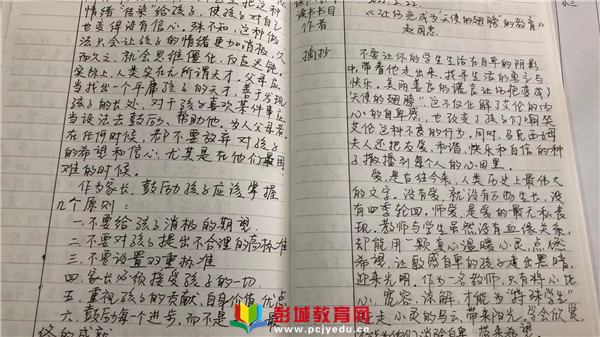 情绪"传染"给孩子，使孩子对自己
也变得没有信心。殊不知，这种做
法只会让孩子的情绪更加消极，久
而久之，就会思维僵化，反应迟钝。
实际上，人类实在无所谓天才，父母应
当找出一个平庸孩子的天才，善于发现
孩子的长处，对于孩子喜欢某件事应
当设法去鼓励、帮助他。为人父母者，
在任何时候，都不要放弃对孩子
的希望和信心，尤其是在他们最困
难的时候。
作为家长，鼓励孩子应该掌握
几个原则：
一.不要给孩子消极的期望
二.不要对孩子提出不合理的高标准
三.不要设置双重标准
四.家长必须接受孩子的一切
五.重视孩子的贡献、自身价值、优点
六.鼓励每个进步，而不是
读书书目
作者
《让伤疤成为天使的翅膀的教育》
赵国忠
摘抄
不要让你的学生生活在自卑的阴影
中，带着他走出来，找寻生活的自信与
快乐。美丽善良的谎言让伤疤变成了
"天使的翅膀"，这不仅化解了艾伦的内
心的自卑感，也改变了孩子们嘲笑
艾伦这种不良的行为。同时，马克西姆
夫人还把友爱、和谐、快乐和自信的种
子撒播到每个人的心田里。
爱，是古往今来，人类历史上最伟大
的文字。没有爱，就没有万物生长，没
有四季轮回，师爱，是爱的最无私表
现。教师与学生虽然没有血缘关系，
却能用一颗真心温暖心灵，点燃
希望，让敏感自卑的孩子走出黑暗，
迎来光明。作为一名教师，只有将心比
心，宽容、谅解，才能为"特殊学生"
走心灵的乌云，带来阳光，学会欣赏
彭城教育网
www.pcjyedu.cn